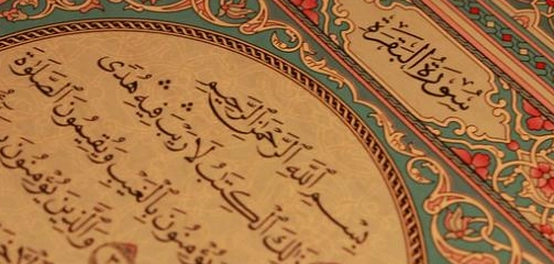 سُورَةُ البَقَرَةِ
بِسْمِ ٱللَّهِ ٱلرَّحْمَٰنِ ٱلرَّحِيمِ
ذَٰلِكَ ٱلْكِتَٰبُ لَا رَيْبَ ۛ فِيهِ ۛ هُدًى
يُؤْمِنُونَ بِٱلْغَيْبِ وَيُقِيمُونَ ٱلصَّلَوٰةَ
وَٱلَّذِينَ يُؤْمِنُونَ